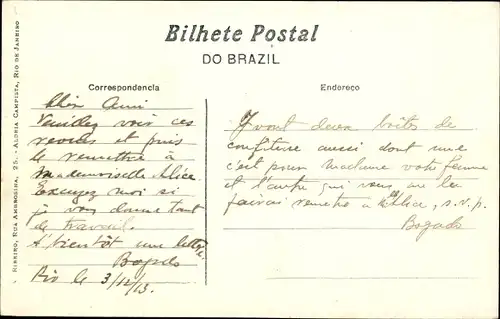 Bilhete Postal
DO BRAZIL
Correspondencia
Endereco
RIBEIRO, RUA AMBROSINA, 25. - ALDEIA CAMPISTA, RIO DE JANEIRO
Cher Ami
Veuillez voir ces
revues et puis
le remettre à
Mademoiselle Alice
Excusez moi si
je vous donne tant
de travail.
A bientôt une lettre.
Bogado
Rio le 3/12/13.
Y vont deux boîtes de
confiture aussi dont une
c'est pour madame votre femme
et l'autre qui vous me la
fairais remettre à Mlle Alice, s.v.p.
Bogado